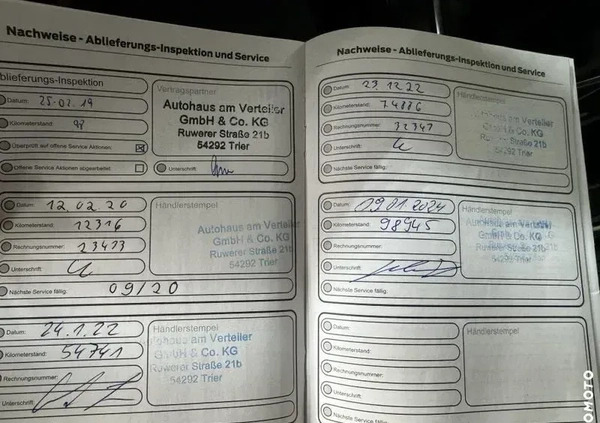 Nachweise - Ablieferungs-Inspektion und Service
Ablieferungs-Inspektion
Datum: 25.02.19
Kilometerstand:
Überprüft auf offene Service Aktionen:
Offene Service Aktionen abgearbeitet:
Vertragspartner
Autohaus am Verteiler
GmbH & Co. KG
Ruwerer Straße 21b
54292 Trier
Unterschrift:
Datum: 12.02.20
Kilometerstand: 12316
Rechnungsnummer: 23473
Unterschrift:
Nächste Service fällig: 09/20
Händlerstempel
Autohaus am Verteiler
GmbH & Co. KG
Ruwerer Straße 21b
54292 Trier
Datum: 24.1.22
Kilometerstand: 54741
Rechnungsnummer:
Unterschrift:
Händlerstempel
Autohaus am Verteiler
GmbH & Co. KG
Ruwerer Straße 21b
54292 Trier
Nachweise - Ablieferungs-Inspektion und Service
Datum: 23.12.22
Kilometerstand: 74886
Rechnungsnummer: 32347
Unterschrift:
Nächste Service fällig:
Händlerstempel
Autohaus am Verteiler
GmbH & Co. KG
Ruwerer Straße 21b
54292 Trier
Datum: 09.01.2024
Kilometerstand: 98945
Rechnungsnummer:
Unterschrift:
Nächste Service fällig:
Händlerstempel
Autohaus am Verteiler
GmbH & Co. KG
Ruwerer Straße 21b
54292 Trier
Datum:
Kilometerstand:
Rechnungsnummer:
Unterschrift:
Nächste Service fällig:
Händlerstempel
OTOMOTO